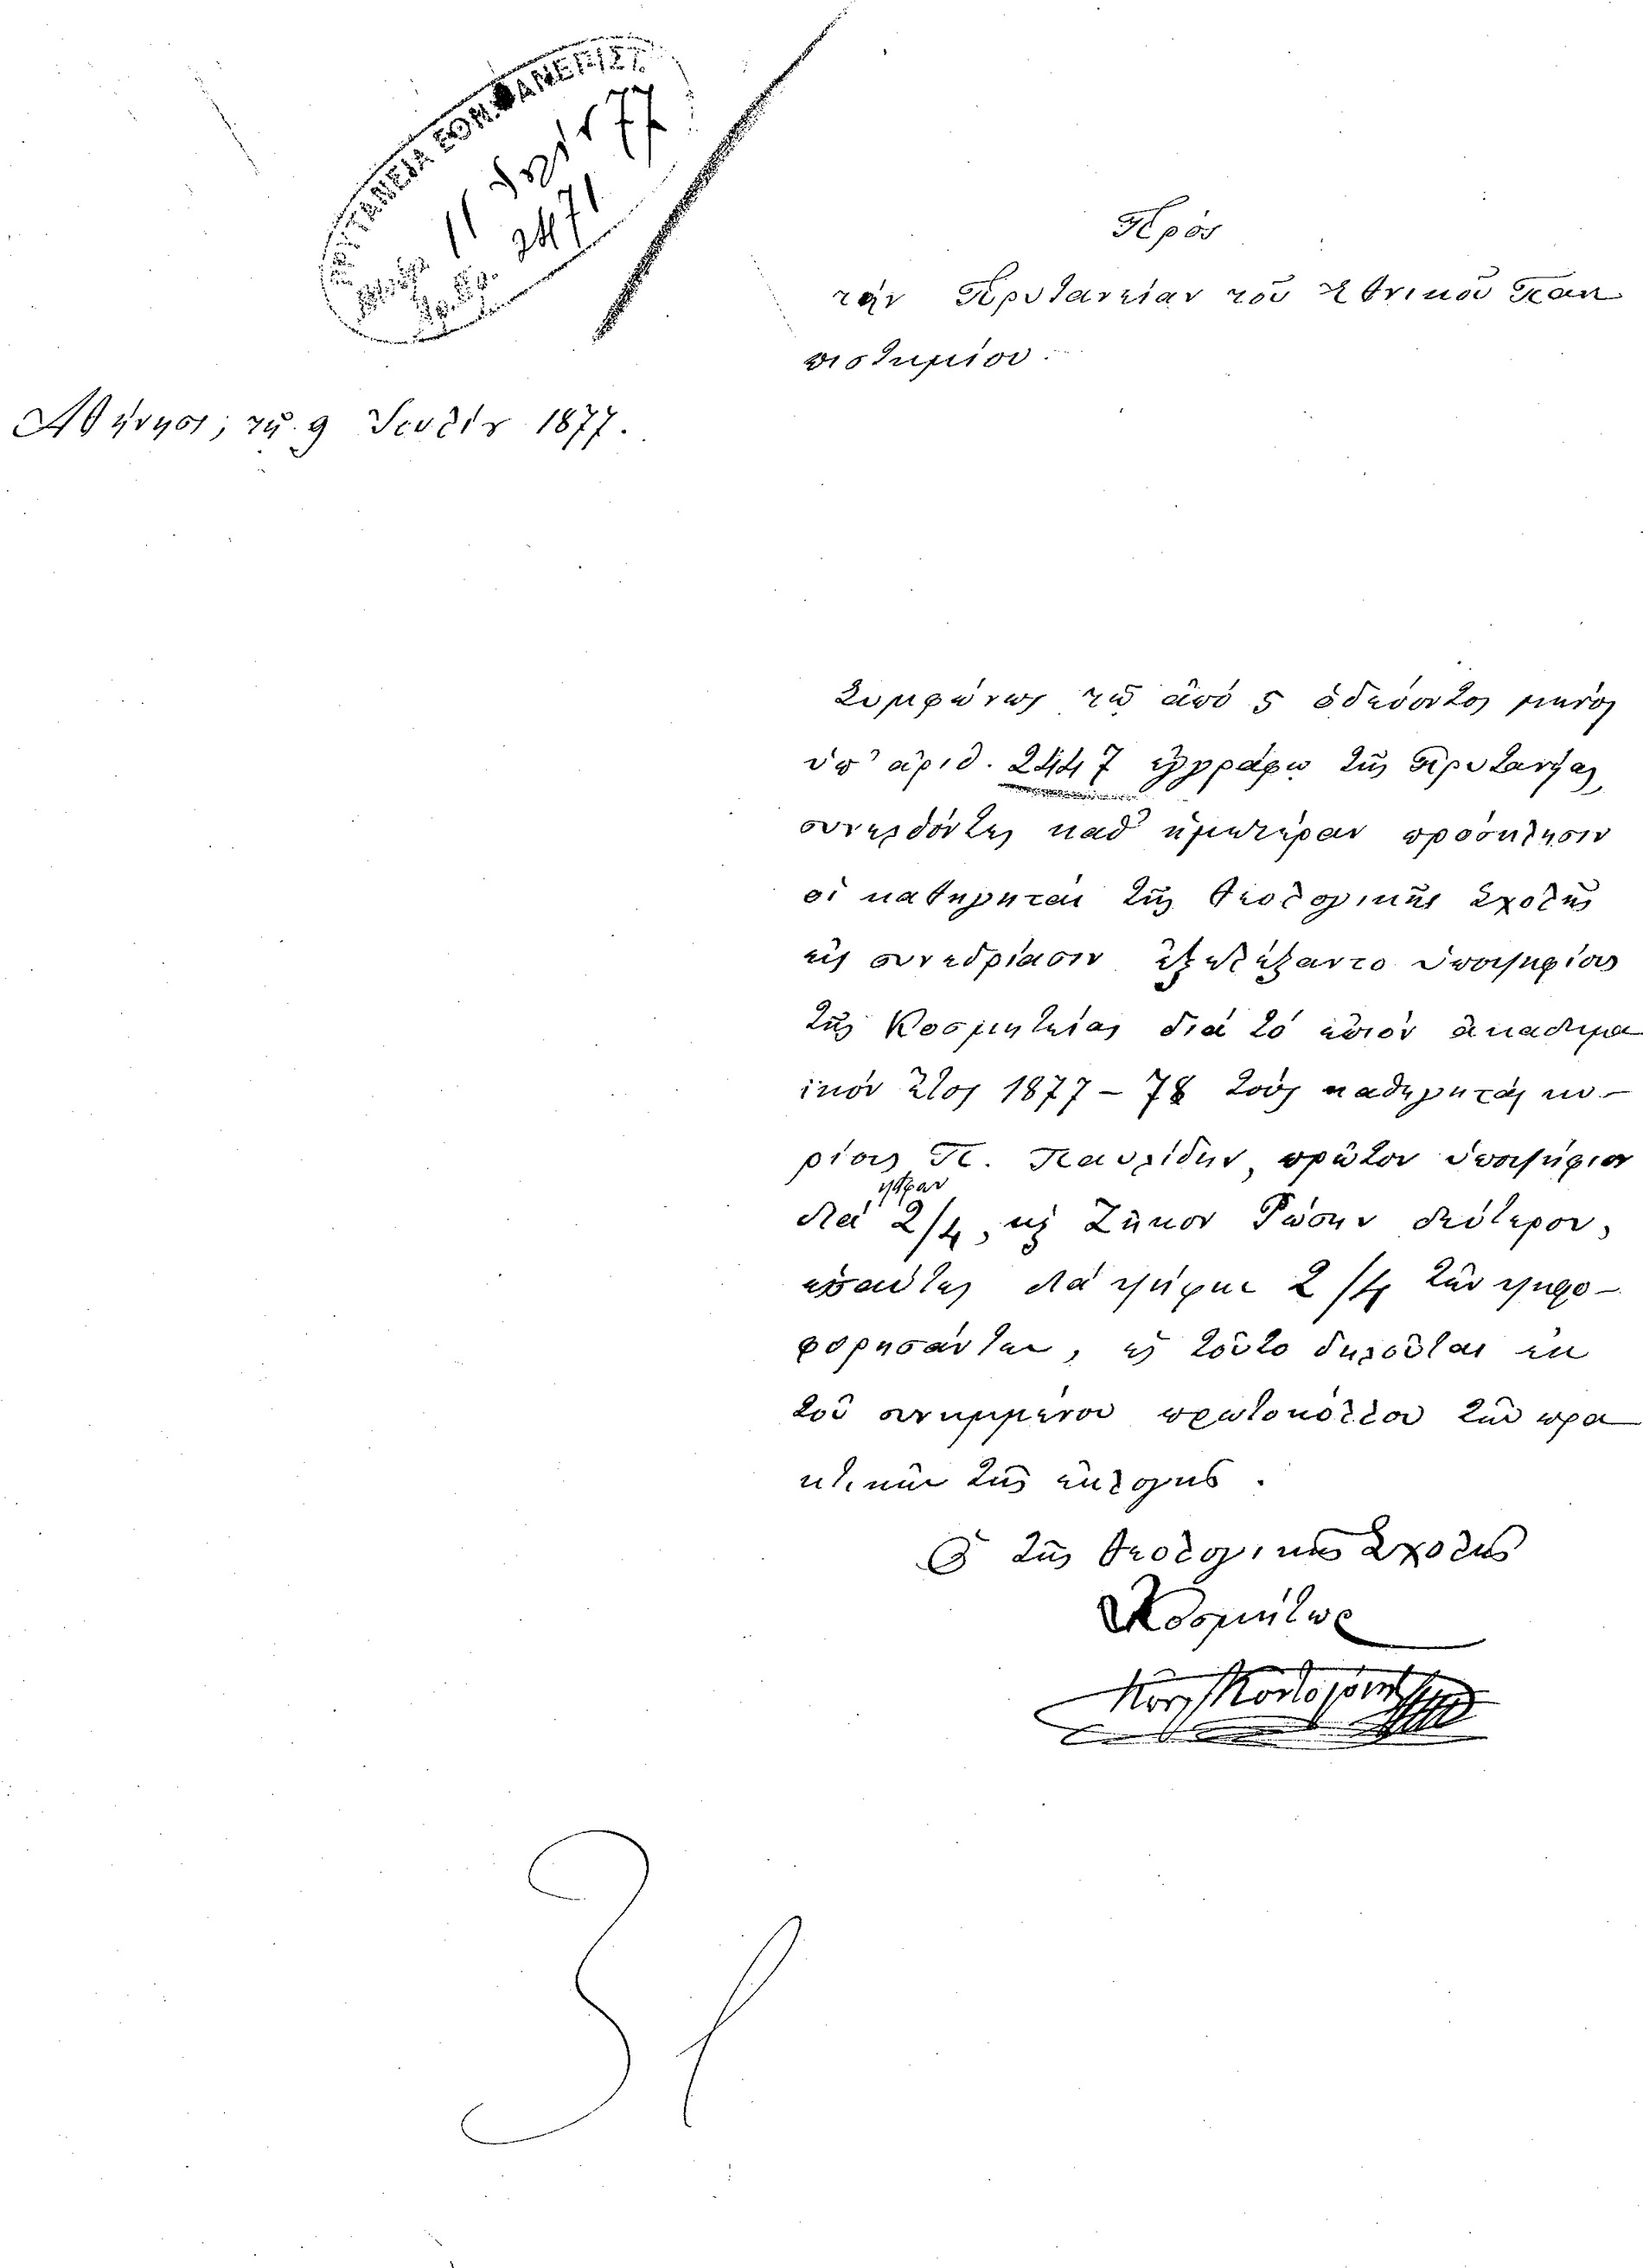 ΠΡΥΤΑΝΕΙΑ ΕΘΝ. ΠΑΝΕΠΙΣΤ.
11 Ἰουλίου 77
2471
Πρὸς
τὴν Πρυτανείαν τοῦ Ἐθνικοῦ Παν
πιστημίου.
Ἀθήνησι, τῇ 9 Ἰουλίου 1877.
Συμφώνως τῷ ἀπὸ 5 ὁδεύοντος μηνὸς
ὑπ' ἀριθ. 2447 ἐγγράφῳ τῆς Πρυτανείας,
συνελθόντες καθ' ἡμετέραν πρόσκλησιν
οἱ καθηγηταὶ τῆς Θεολογικῆς Σχολῆς
εἰς συνεδρίασιν ἐξελέξαντο ὑποψηφίους
τῆς Κοσμητείας διὰ τὸ ἐπιὸν ἀκαδημα
ικὸν ἔτος 1877 – 78 τοὺς καθηγητὰς κυ–
ρίους Π. Παυλίδην, πρῶτον ὑποψήφιον
ψήφων
διὰ 2/4, κὶ Ζῆκον Ῥώσην δεύτερον,
ὡσαύτως διὰ ψήφων 2/4 τῶν ψηφο–
φορησάντων, ὡς τοῦτο δηλοῦται ἐκ
τοῦ συνημμένου πρωτοκόλλου τῶν πρα
κτικῶν τῆς ἐκλογῆς.
Ὁ τῆς Θεολογικῆς Σχολῆς
Κοσμήτωρ
Κων. Κοντογόνης
31